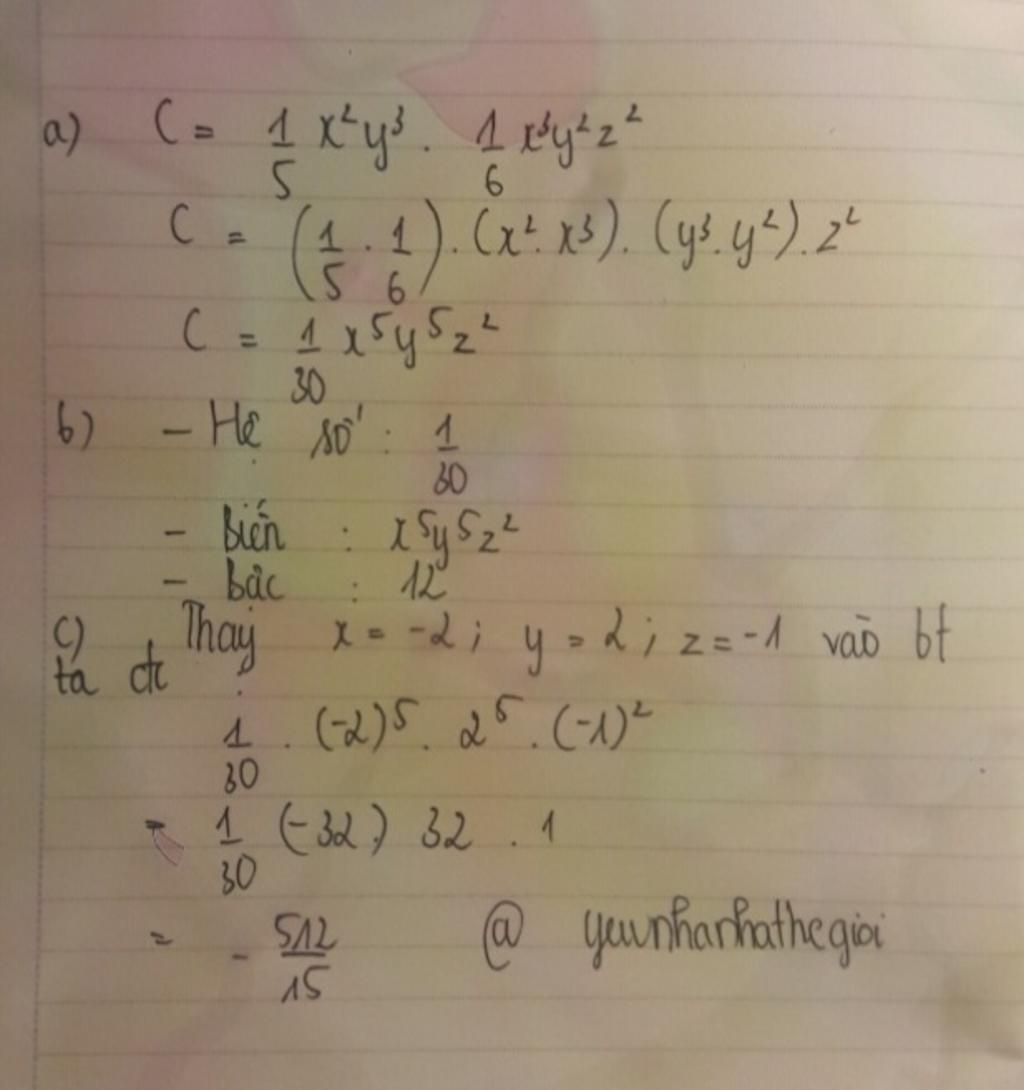 a) C = 1/5 x²y³ . 1/6 x³y²z²
C = (1/5 . 1/6) . (x² . x³) . (y³ . y²) . z²
C = 1/30 x⁵y⁵z²
b) - Hệ số : 1/30
- Biến : x⁵y⁵z²
- Bậc : 12
c) Thay x = -2 ; y = 2 ; z = -1 vào bt
ta đc
1/30 . (-2)⁵ . 2⁵ . (-1)²
= 1/30 (-32) 32 . 1
= - 512/15 @ yeunhanhathegioi